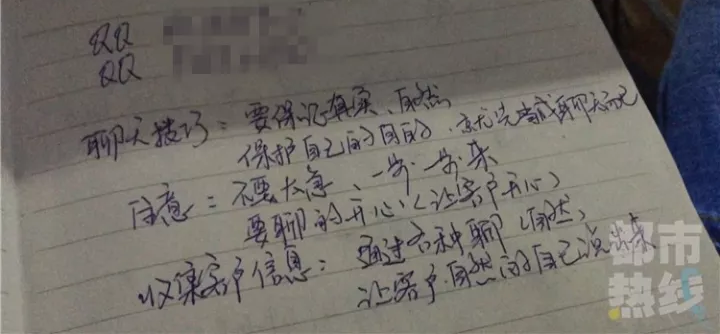 QQ
QQ
聊天技巧：要保证真实、自然
保护自己的目的，就完成聊天
注意：不要太急、一步一步来
要聊的开心（让客户开心）
收集客户信息：通过各种聊（自然）
让客户自然的自己说出来
都市
热线